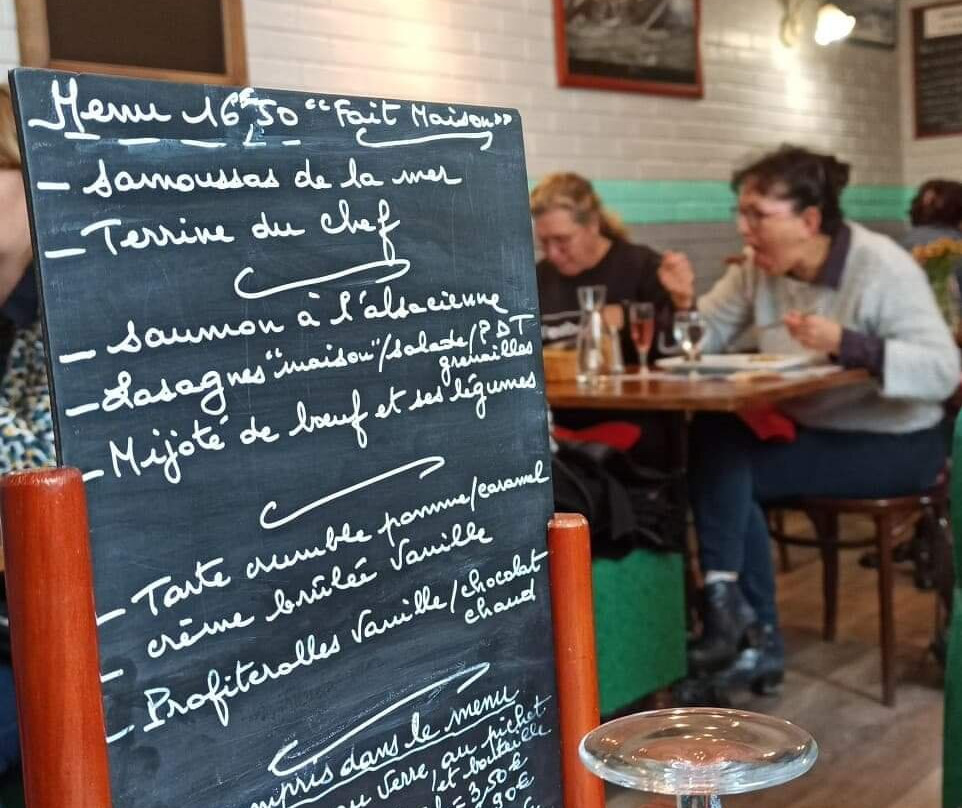 Menu 16€,50 "Fait Maison"
- Samoussas de la mer
- Terrine du chef
- Saumon à l'alsacienne
- Lasagnes "maison"/salade/PDT
grenailles
- Mijoté de bœuf et ses légumes
- Tarte crumble pomme/caramel
- crème brûlée Vanille
- Profiterolles Vanille/chocolat
chaud
dans le menu
verre, au pichet
et bouteille
= 3,50€
90€